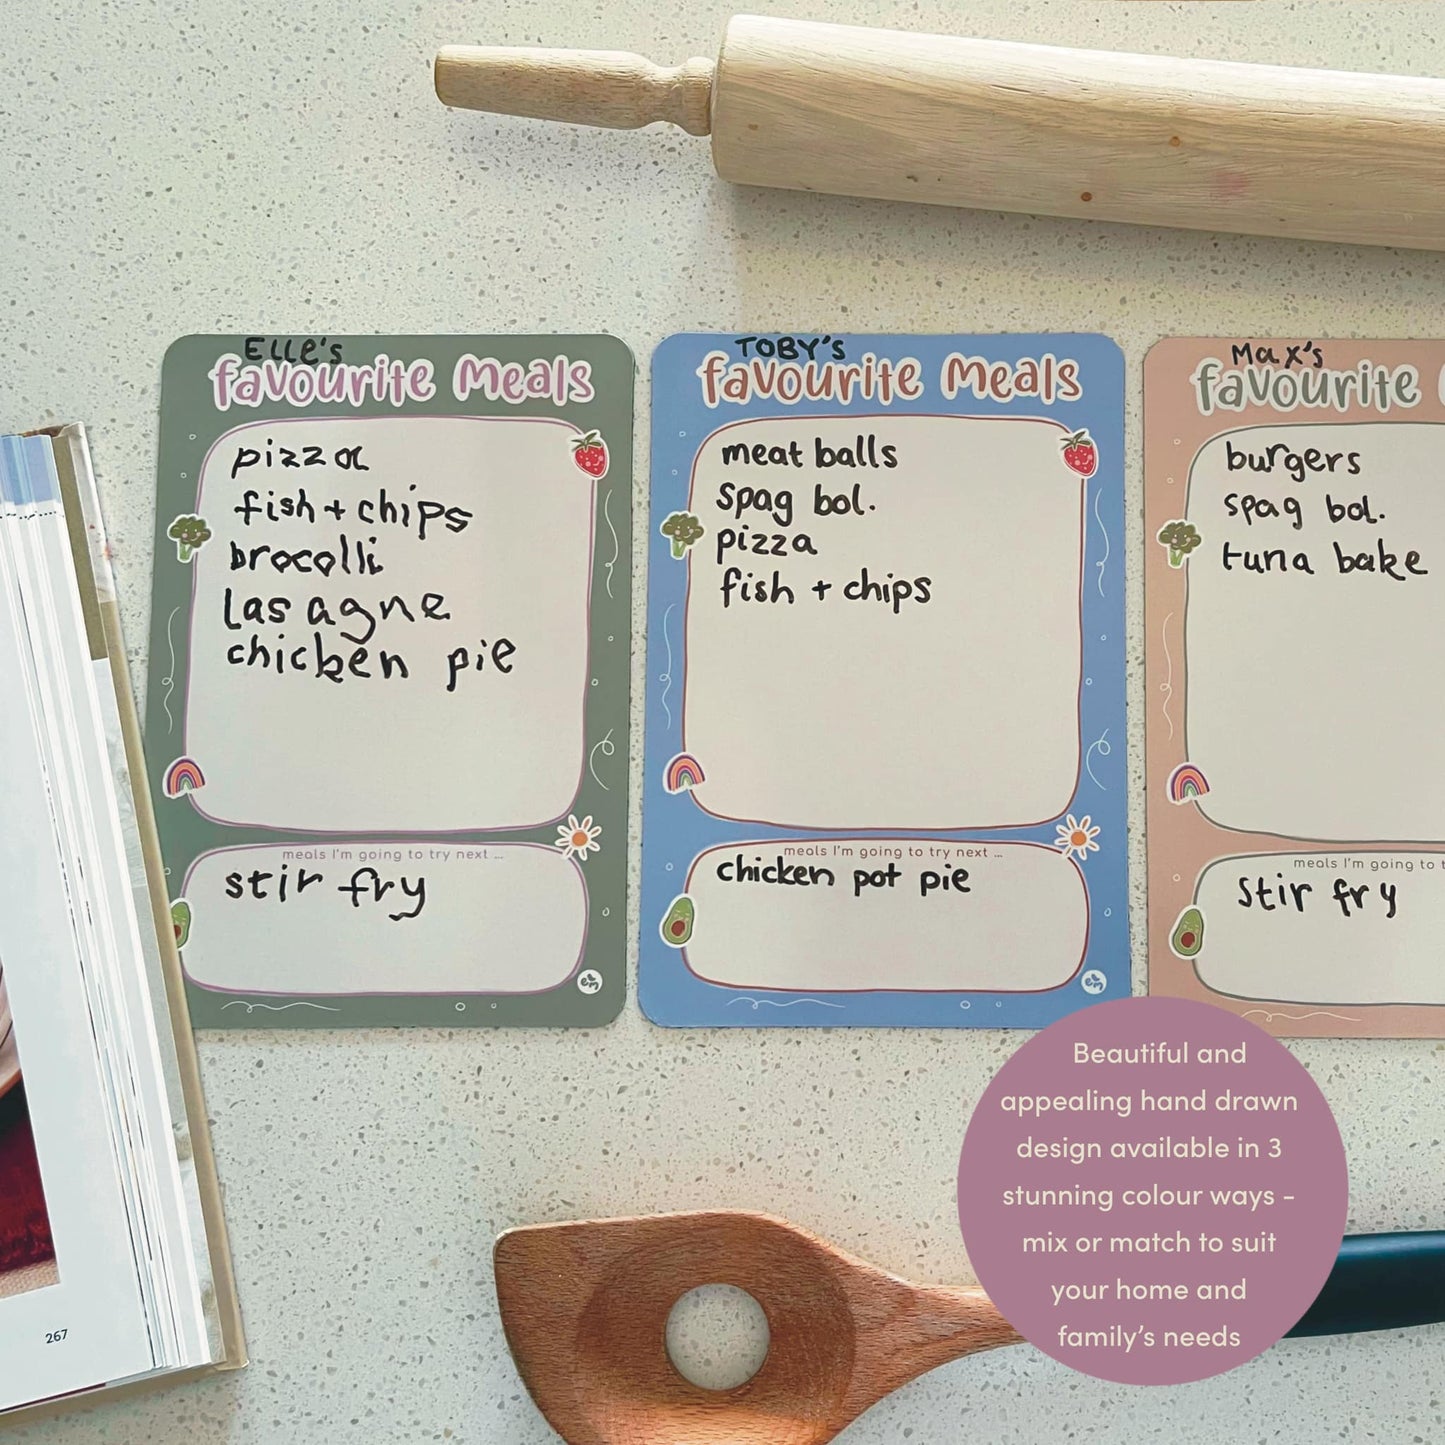 Elle's
favourite meals
pizza
fish + chips
brocolli
lasagne
chicken pie
meals I'm going to try next ...
stir fry
elm
TOBY'S
favourite meals
meat balls
spag bol.
pizza
fish + chips
meals I'm going to try next ...
chicken pot pie
elm
Max's
favourite
burgers
spag bol.
tuna bake
meals I'm going to t
stir fry
267
Beautiful and
appealing hand drawn
design available in 3
stunning colour ways -
mix or match to suit
your home and
family's needs